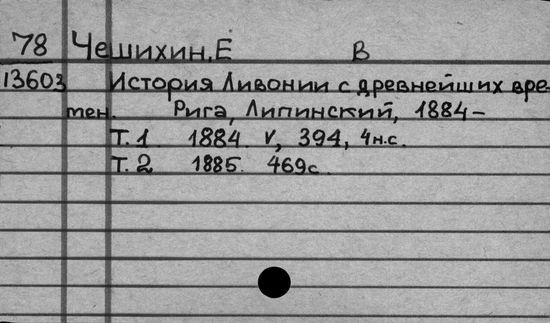 78 Чешихин, Е В
13603 История Ливонии с древнейших вре-
мен. Рига, Липинский, 1884-
Т. 1 1884 V, 394, 4 н.с.
Т. 2 1885. 469с.